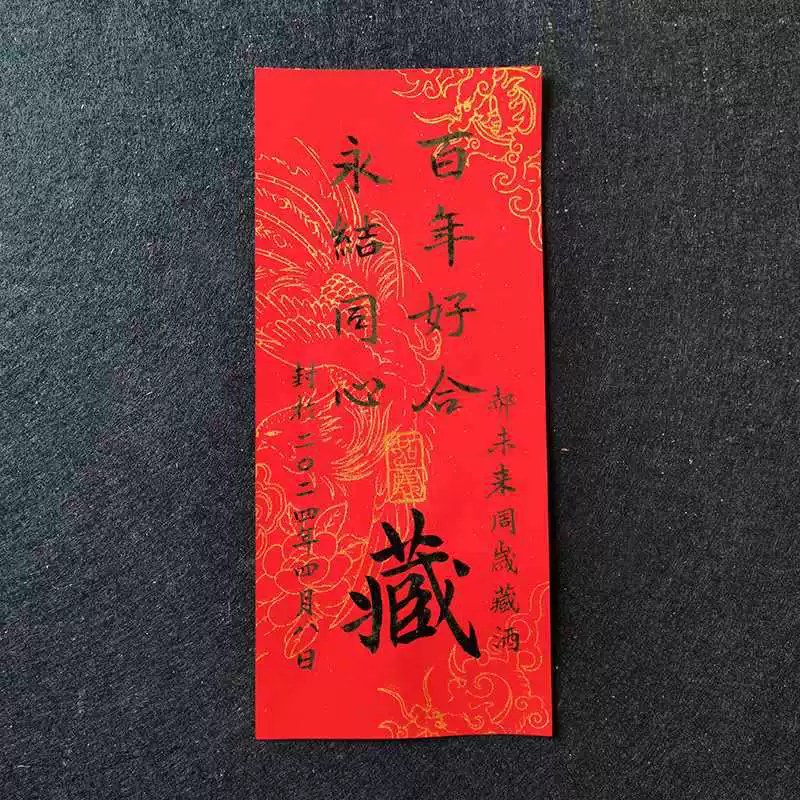 郝未来周歲藏酒
百年好合
永結同心
藏
封於二〇二四年四月八日